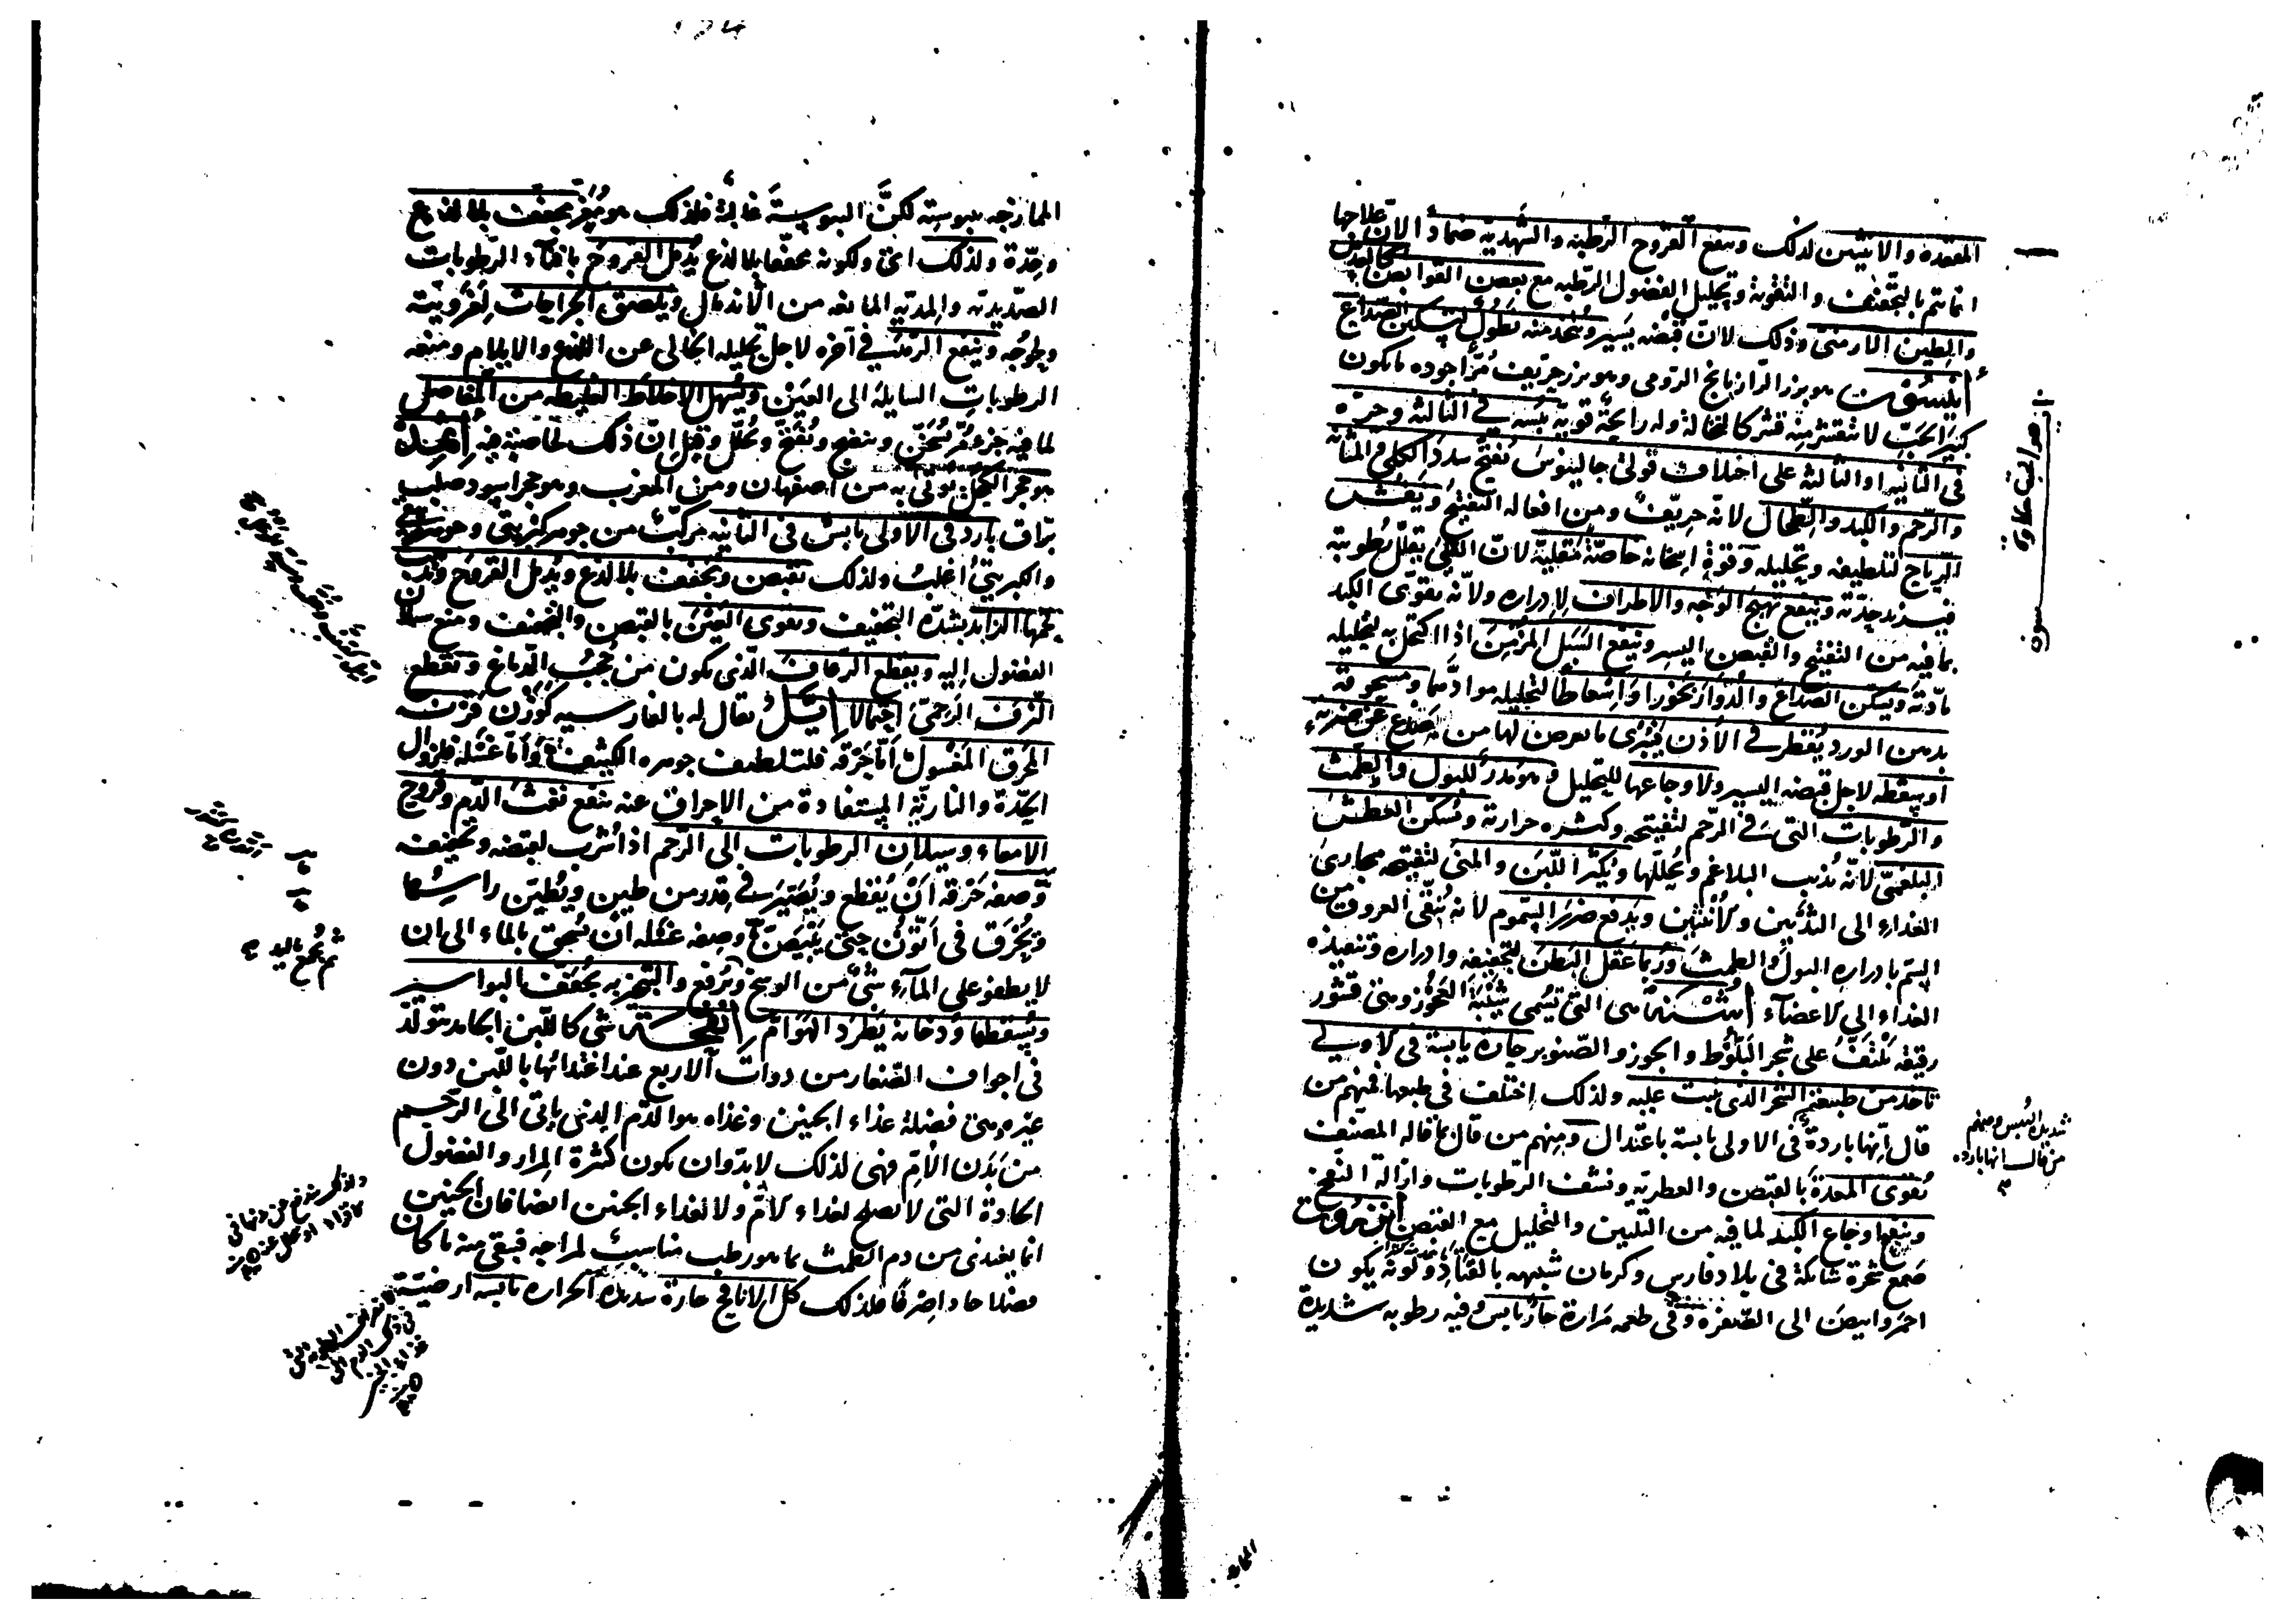 المقعدة والانثيين لذلك وينفع القروح الرطبة والشهدية ضمادا لان علاجها
انما تتم بالتجفيف والتقوية وتحليل الفضول الرطبه مع بعض القوابض كالعدس
والطين الارمنى وذلك لان قبضه يسير ويتخذ منه نطول لتسكين الصداع
أنيسون هو بزر الرازيانج الرومى وهو بزر حريف مُرّ اجوده ما يكون
كبير الحَبّ لا تتقشر منه قشر كالنخالة وله رايحة قوية يبسه فى الثالثة وحرّه
فى الثانيه او الثالثه على اختلاف قولى جالينوس يفتح سدد الكلى والمثانة
والرّحم والكبد والطحال لانه حريف ومن افعاله التفتيح ويفش
الرياح لتلطيفه وتحليله وقوة اسخانه خاصة مقليه لان القلى يقلل رطوبته
فيزيد حِدّته وينفع تهيج الوجه والاطراف لإدراره ولانه يقوى الكبد
بما فيه من التفتيح والقبض اليسير وينفع السبل المزمن اذا اكتحل به لتحليله
مادّته ويسكن الصداع والدوار بخورا واسعاطا لتحليله موادهما ومسحوقه
بدهن الورد يقطر فى الأذن فيبرى ما يعرض لها من صدع عن ضربة
او سقطه لاجل قبضه اليسير ولاوجاعها للتحليل وهو مدر للبول والطمث
والرطوبات التى فى الرحم لتفتيحه وكثره حرارته ويسكن العطش
البلغمى لانه يذيب البلاغم ويحللها ويكثر اللبن والمنى لتفتيحه مجارى
الغذاء الى الثديين والانثيين ويدفع ضرر السموم لانه ينقى العروق من
السم بادراره البول والطمث وربما عقل البطن لتجفيفه وادراره وتنفيذه
الغذاء الى الاعضاء أشنة هى التى تسمى شيبة العجوز وهى قشور
رقيقه تلتف على شجر البلوط والجوز والصنوبر حارة يابسة فى الاولى
تاخذ من طبيعة الشجر الذى نبتت عليه ولذلك اختلف فى طبعها فمنهم من
قال انها باردة فى الاولى يابسة باعتدال ومنهم من قال ما قاله المصنف
تقوى المعدة بالقبض والعطرية ونشف الرطوبات وازالة النفخ
وينفع اوجاع الكبد لما فيه من التليين والتحليل مع القبض أنزروت
صمغ شجرة شائكة فى بلاد فارس وكرمان شبيهه بالقتاد ولونه يكون
احمر وابيض الى الصفرة وفى طعمه مرارة حار يابس وفيه رطوبه شديدة
شديدة اليبس ومنهم
من قال انها بارده
الممازجه بيبوسته لكنّ اليبوسة غالبة فلذلك هو مُغَرٍّ مجفف بلا لذع
وحِدّة ولذلك اى ولكونه مجففا بلا لذع يدمل القروح بافناء الرطوبات
الصديدية والمدّية المانعه من الاندمال ويلصق الجراحات لغرويته
ولزوجه وينفع الرمد فى آخره لاجل تحليله الخالى عن اللذع والايلام ومنعه
الرطوبات السايلة الى العين ويسهل الاخلاط الغليظه من المفاصل
لما فيه جزء مر يسخن وينضج ويفتح ويحلل وقيل انّ ذلك لخاصية فيه إثمد
هو حجر الكحل يؤتى به من اصفهان ومن المغرب وهو حجر اسود صلب
برّاق بارد فى الاولى يابس فى الثانيه مركب من جوهر كبريتى وجوهر
والكبريتى اغلب ولذلك يقبض ويجفف بلا لذع ويدمل القروح ويذهب
لحمها الزايد بشدة التجفيف ويقوى العين بالقبض والتجفيف ومنع سيلان
الفضول اليه ويقطع الرعاف الذى يكون من حجب الدماغ ويقطع
النزف الرحمى احتمالا إيّل يقال له بالفارسيه كوزن قرنه
المحرق المغسول أمّا حرقه فلتلطيف جوهره الكثيف وأما غسله فلزوال
الحِدّة والنارية المستفادة من الإحراق عنه ينفع نفث الدم وقروح
الامعاء وسيلان الرطوبات الى الرحم اذا شرب لقبضه وتجفيفه
وصفة حرقه أن يقطع ويصيّر فى قدر من طين ويطين راسها
ويحرق فى أتّون حتى يبيض وصفه غسله أن يسحق بالماء الى ان
لا يطفو على الماء شىء من الوسخ ويرفع والتبخر به يجفف البواسير
ويسقطها ودخانه يطرد الهوام إنفحة شى كاللبن الجامد يتولد
فى اجواف الصغار من ذوات الاربع عند اغتذائها باللبن دون
غيره وهى فضلة غذاء الجنين وغذاه هو الدم الذى ياتى الى الرحم
من بَدَن الأمّ فهى لذلك لابدّ وان يكون كثرة المرار والفضول
الحادة التى لا تصلح لغذاء الامّ ولا لغذاء الجنين ايضا فان الجنين
انما يغتذى من دم الطمث بما هو رطب مناسب لمزاجه فيبقى منه ما كان
فضلا حاد اصرفا فلذلك كل الانافح حارة شديدة الحرارة يابسه ارضيته
ثم يجمع باليد